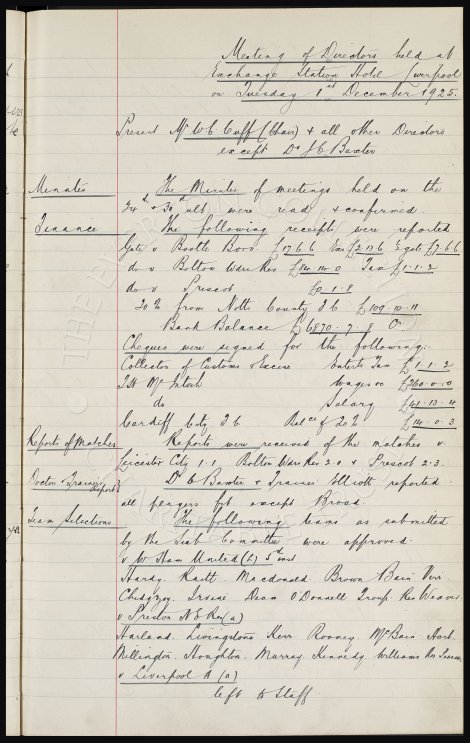 Meeting of Directors held at
Exchange Station Hotel Liverpool
on Tuesday 1st December 1925.
Present Mr W C Cuff (Chair) & all other Directors
except Dr J C Baxter
Minutes The Minutes of meetings held on the
24th & 30th ult were read & confirmed.
Finance The following receipts were reported
Gate v Bootle Boro. £17.6.6 Tax £2.13.6 ½ gate £7.6.6
do v Bolton Wdrs Res £84.14.0 Tax £1.1.2
do v Prescot £0.1.8
20% from Notts County F C £109.10.11
Bank Balance £6870.7.8 Cr
Cheques were signed for the following:
Collector of Customs & Excise Enterts Tax £1.1.2
T H McIntosh Wages £260.0.0
do Salary £41.13.4
Cardiff City F C 20% £14.0.3
Reports of Matches Reports were received of the matches v.
Leicester City 1.1 Bolton Wdrs Res 2.0 & Prescot 2.3.
Doctor & Trainers Reports Dr Baxter & Trainer Elliott reported
all players fit except Broad.
Team Selections The following teams as submitted
by the Committee were approved.
v W Ham United (h) 5th inst
Hardy. Raitt. Macdonald. Brown Bain Virr.
Chedgzoy. Irvine Dean O'Donnell Troup. Res Weaver
v Preston N E Res (a)
Harland. Livingstone Kerr. Rooney. McBain Hart.
Millington. Houghton. Murray Kennedy. Williams Res
v Liverpool A (a)
left to Staff